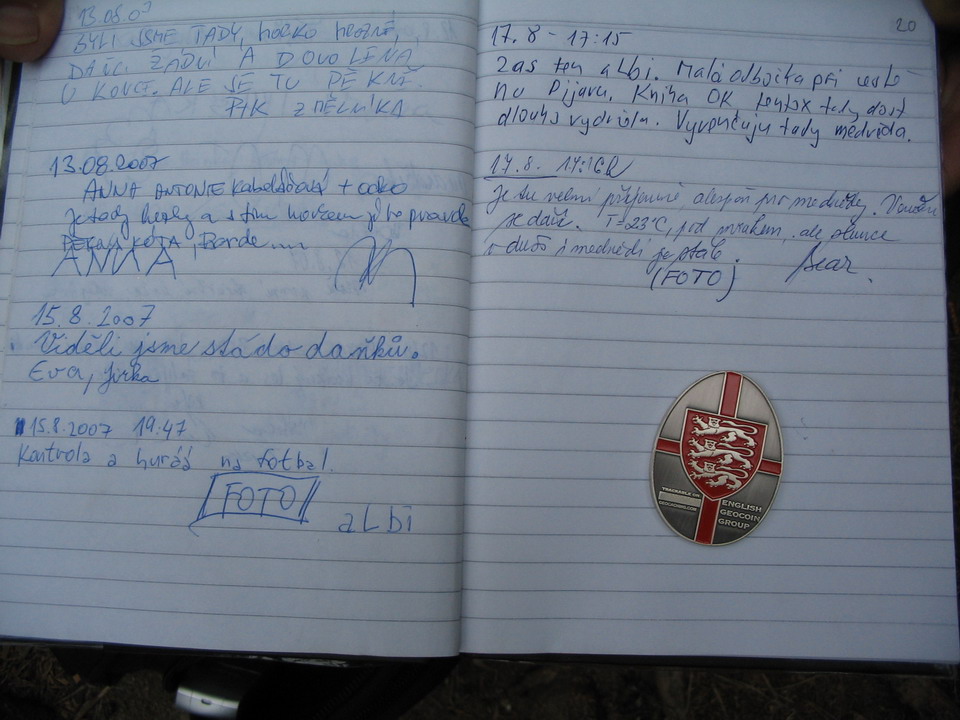 13.08.07
BYLI JSME TADY, HORKO HROZNÉ,
DAŇCI ŽÁDNÍ A DOVOLENÁ
U KONCE. ALE JE TU PĚKNĚ.
PIK Z MĚLNÍKA
13.08.2007
ANNA ANTONIE + ooko
je tady hezky a s tím
KÓTA,
ANNA
15.8.2007
Viděli jsme stádo daňků.
Eva, Jirka
15.8.2007 19:47
Kontrola a hurááá na fotbal.
FOTO
aLbi
20
17.8 - 17:15
Zas ten albi. Malá odbočka při cestě
na Pijavu. Kniha OK tady dost
dlouho vydržela. Vypouštím tady medvěda.
17.8. 17:16
Je tu velmi příjemně alespoň pro medvědy.
je dají. T=23°C, pod mrakem, ale slunce
v duši i medvědi je stále.
(FOTO) Bear.
TRACKABLE ON
GEOCACHING.COM
ENGLISH
GEOCOIN
GROUP